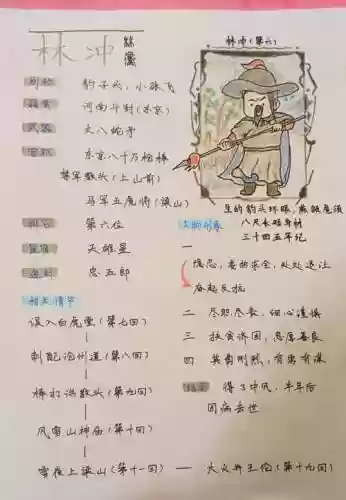 林冲
林冲(第六)
别称 豹子头、小张飞
籍贯 河南开封(东京)
武器 丈八蛇矛
官职 东京八十万枪棒
禁军教头(上山前)
马军五虎将(梁山)
排位 第六位
星宿 天雄星
忠五郎
相关情节
误入白虎堂(第七回)
刺配沧州道(第八回)
棒打洪教头(第九回)
风雪山神庙(第十回)
雪夜上梁山(第十一回) — 火火并王伦(第十九回)
生的豹头环眼,燕颔虎须
八尺长短身材
三十四五年纪
人物形象
一
隐忍,委曲求全,处处退让
奋起反抗
二 尽职尽责,细心谨慎
三 扶贫济困,忠厚善良
四 英勇刚烈,有勇有谋
结局 得了中风,半年后
因病去世